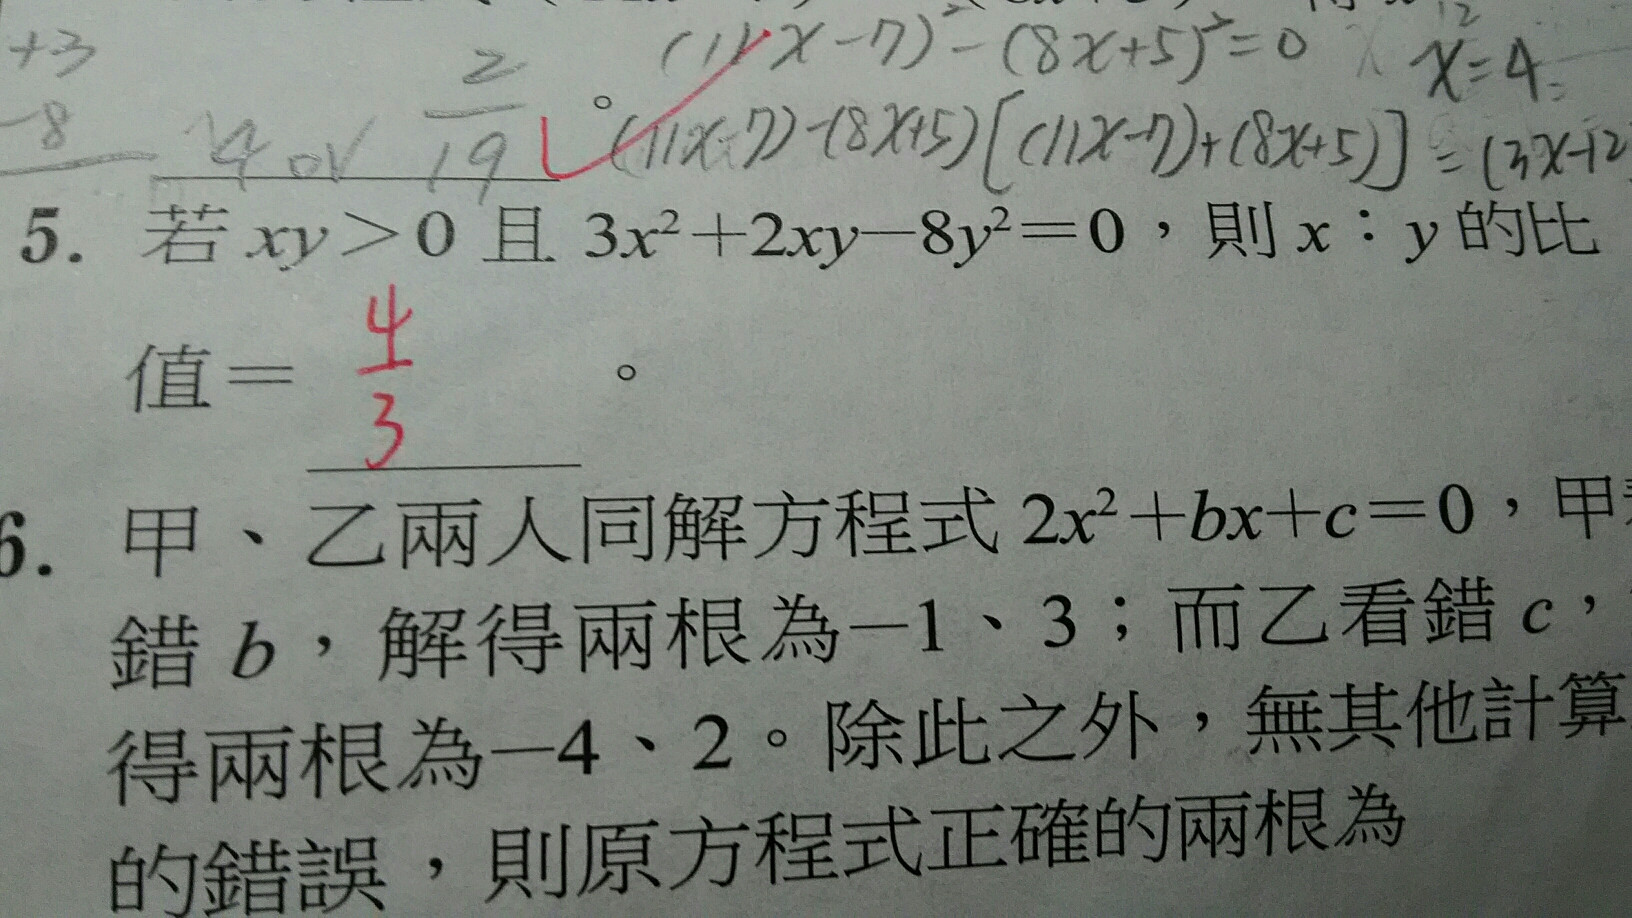 +3
-8
(11x-7)²-(8x+5)²=0
x=4
4 or 2/19 。
(11x-7)-(8x+5)[(11x-7)+(8x+5)]=(3x-12
5. 若 xy＞0 且 3x²＋2xy－8y²＝0，則 x：y 的比
值＝ 4/3 。
6. 甲、乙兩人同解方程式 2x²＋bx＋c＝0，甲
錯 b，解得兩根為－1、3；而乙看錯 c，
得兩根為－4、2。除此之外，無其他計算
的錯誤，則原方程式正確的兩根為